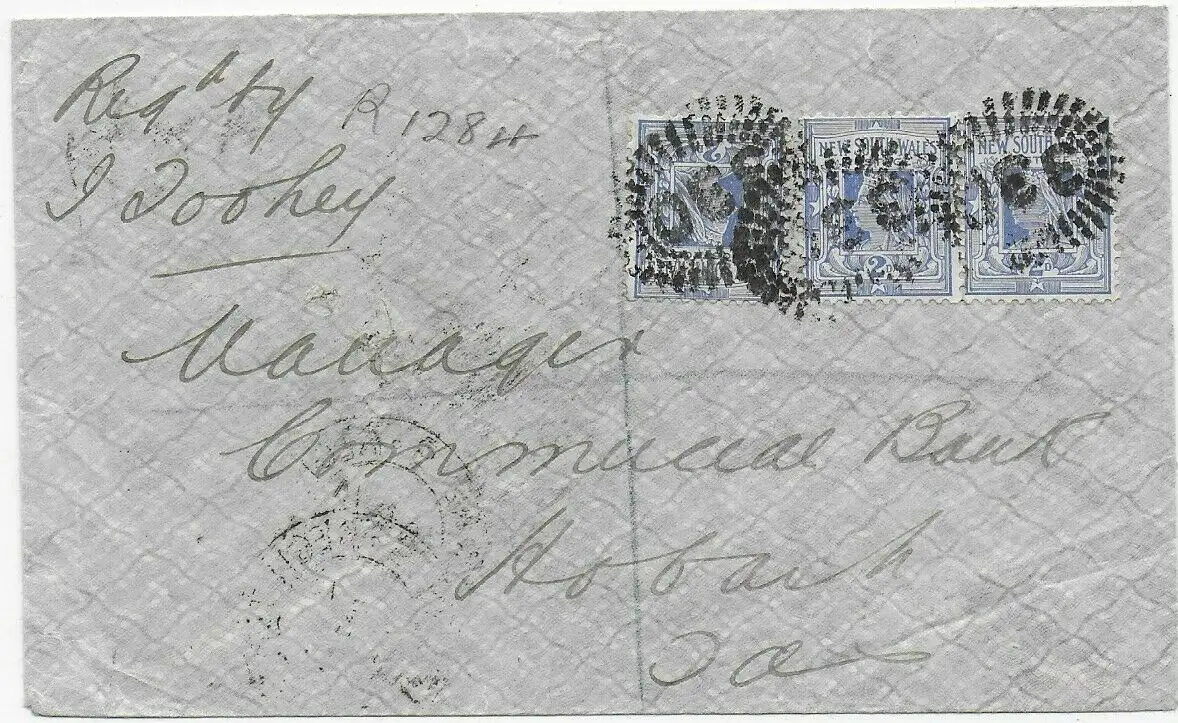 Regd by
R 1284
J Toohey
NEW SOUTH WALES
NEW SOUTH
2D
2D
Manager
Commercial Bank
Hobart
Tas